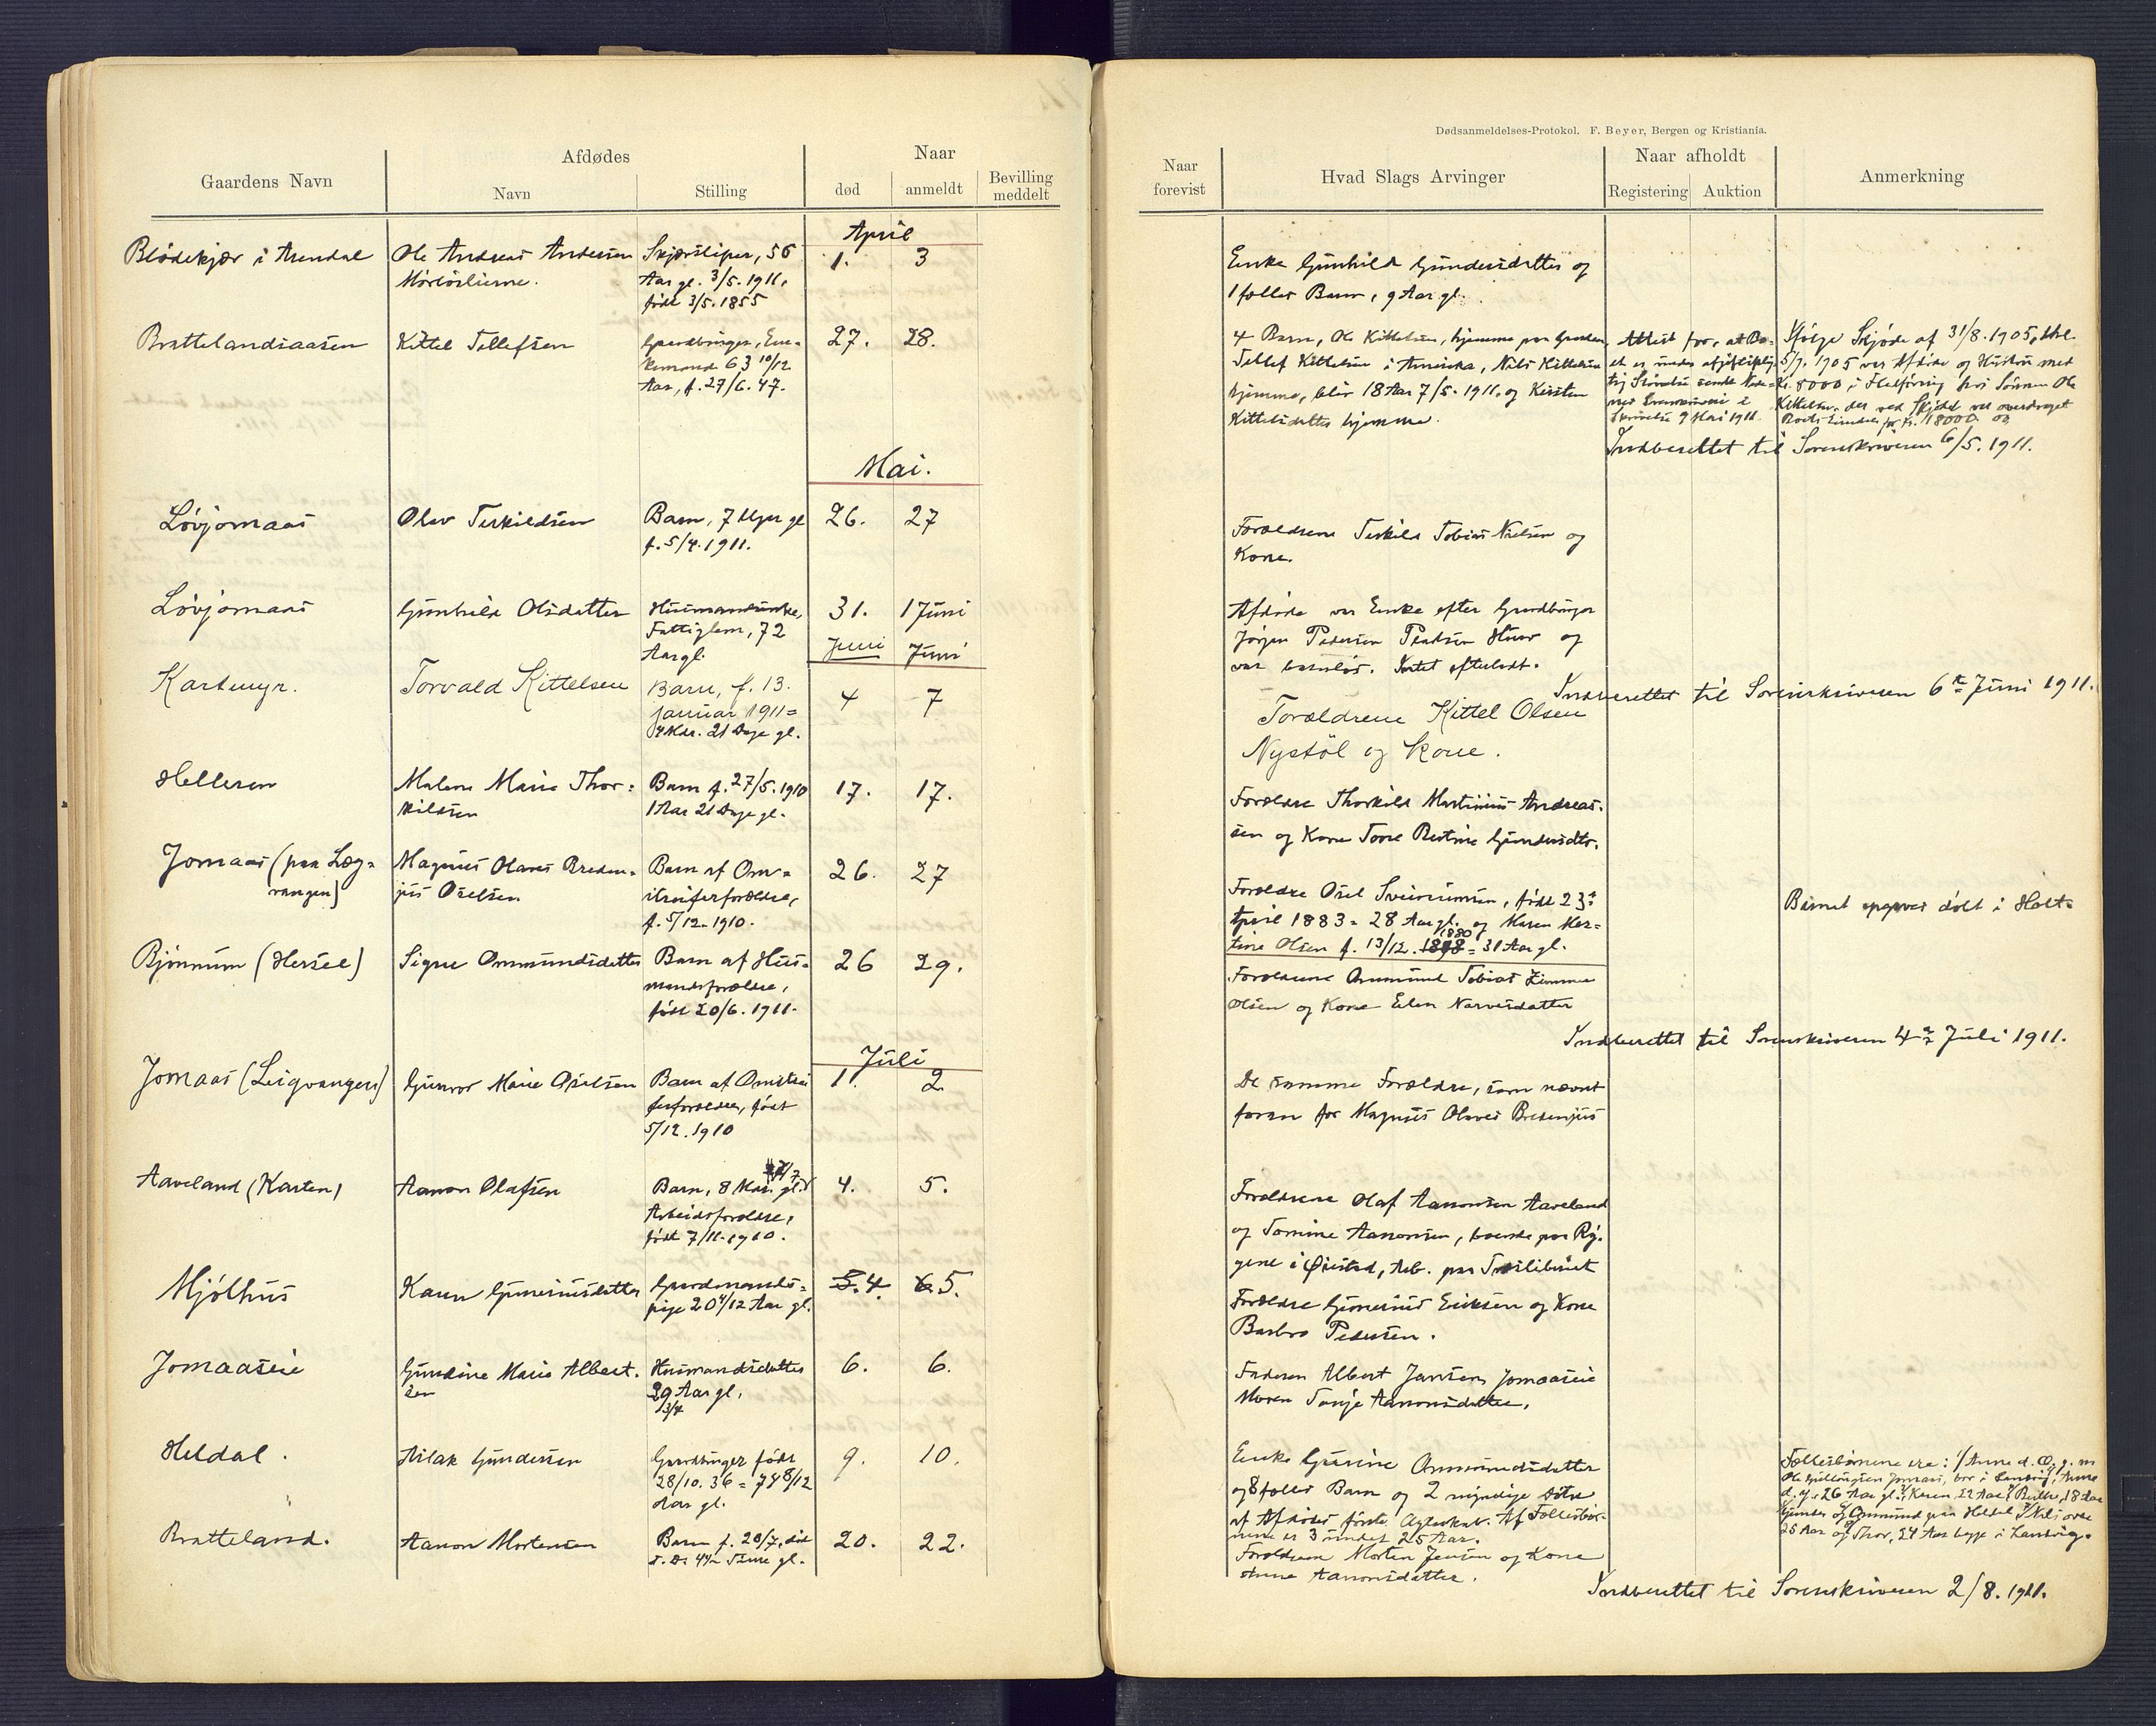 Dødsanmeldelses-Protokol. F. Beyer, Bergen og Kristiania.
Gaardens Navn
Afdødes
Navn
Stilling
Naar
død
anmeldt
Bevilling
meddelt
Naar
forevist
Hvad Slags Arvinger
Naar afholdt
Registering
Auktion
Anmerkning
April
Blödekjær i Arendal
Ole Andreas Andersen
Skjærsliper, 56
Aar gl. 3/5. 1911.
født 3/5. 1855
1.
3
Enke Gunhild Gundersdatter og
1 fælles Barn, 9 Aar gl.
Brattelandsaasen
Kittel Tellefsen
Gaardbruger, En-
kemand 63 10/12
Aar, f. 27/6. 47.
27.
28.
4 Barn, Ole Kittelsen, hjemme paa Gaarden
Tellef Kittelsen i Amerika, Nils Kittelsen
hjemme, blir 18 Aar 7/5. 1911. og Kirsten
Kittelsdatter hjemme.
Attest for, at Bo-
et er under
Skrivelse 9 Mai 1911.
Ifølge Skjøde af 31/8. 1905,
5/9. 1905 var Afdøde og Hustru med
Kr. 8000 i hos Sønnen Ole
Kittelsen, der ved Skjødet var overdraget
for Kr. 18000 og
Indberettet til Sorenskriveren 6/5. 1911.
Mai.
Løvjomaas
Olav Terkildsen
Barn, 7 Uger gl
f. 5/4. 1911.
26.
27
Forældrene Terkild Tobias Nielsen og
Kone.
Løvjomaas
Gunhild Olsdatter
Husmandsenke,
Fattiglem, 72
Aar gl.
31.
1 Juni
Afdøde var Enke efter Gaardbruger
Jørgen Pedersen og
var barnløs. Intet efterladt.
Indberettet til Sorenskriveren 6te Juni 1911.
Juni
Juni
Kartmyr.
Torvald Kittelsen
Barn, f. 13.
Januar 1911 =
4 Mdr. 21 Dage gl.
4
7
Forældrene Kittel Olsen
Nystøl og Kone.
Helleren
Malene Marie Thor-
kildsen
Barn f. 27/5. 1910
1 Aar 21 Dage gl.
17.
17.
Forældre Thorkild Martinius Andreas-
sen og Kone Tone Bertine Gundersdtr.
Jomaas (paa Løg-
vangen)
Magnus Olaves Breden-
jus Oselsen
Barn af Om-
streiferforældre,
f. 5/12. 1910.
26.
27
Forældre Osel Sverinsen, født 23de
April 1883 = 28 Aar gl. og Maren Mar-
tine Olsen f. 13/12. 1898 1880 = 31 Aar gl.
Barnet opgives døbt i Holt.
Bjønnum (Hersel)
Signe Ommundsdatter
Barn af Hus-
mandsforældre,
født 20/6. 1911.
26
29.
Forældrene Ommund Tobias
Olsen og Kone Elen Narvesdatter
Indberettet til Sorenskriveren 4de Juli 1911.
Juli
Jomaas (Leigvangen)
Gunvor Marie Oselsen
Barn af Omstrei
ferforældre, født
5/12. 1910
1.
2
De samme Forældre, som nævnt
foran for Magnus Olaves Bredenjus
Aaveland (Karten)
Aanon Olafsen
Barn, 8 Mdr. gl. 7/7
Arbeidsforældre,
født 7/11. 1910.
4.
5.
Forældrene Olaf Aanonsen Aaveland
og Tomine Aanonsen, boende paa Ry-
gene i Øiestad, Arb. paa Træsliberiet
Mjölhus
Karen Gunerinsdatter
Gaardmands-
pige 20 4/12 Aar gl.
5. 4.
6 5.
Forældre Gunerius Eriksen og Kone
Barbro Pedersen.
Jomaaseie
Gundine Marie Albert-
sen
Husmandsdatter
29 Aar gl.
3/4
6.
6.
Faderen Albert Jansen Jomaaseie
Moren Tonje Aanonsdatter.
Heldal.
Aslak Gundersen
Gaardbruger født
28/10. 36 = 74 8/12
Aar gl.
9.
10.
Enke Gurine Ommundsdatter
og 8 fælles Barn og 2 myndige Døtre
af Afdødes første Ægteskab. Af Fællesbør-
nene er 3 under 25 Aar.
Fællesbørnene ere: 1/ Anne d. Æ, g. m
Ole Gulbrandsen Jomaas, bor i Landvig, Anne
d. y. 26 Aar gl., Karen, 22 Aar, 18 Aar
Gunder og Ommund paa Heldal, Nils over
25 Aar og Thor, 24 Aar begge i Landvig.
Bratteland.
Aanon Mortensen
Barn f. 20/7, død
s. D. 4 1/2 Time gl.
20.
22.
Forældrene Morten Jensen og Kone
Anne Aanonsdatter.
Indberettet til Sorenskriveren 2/8. 1911.